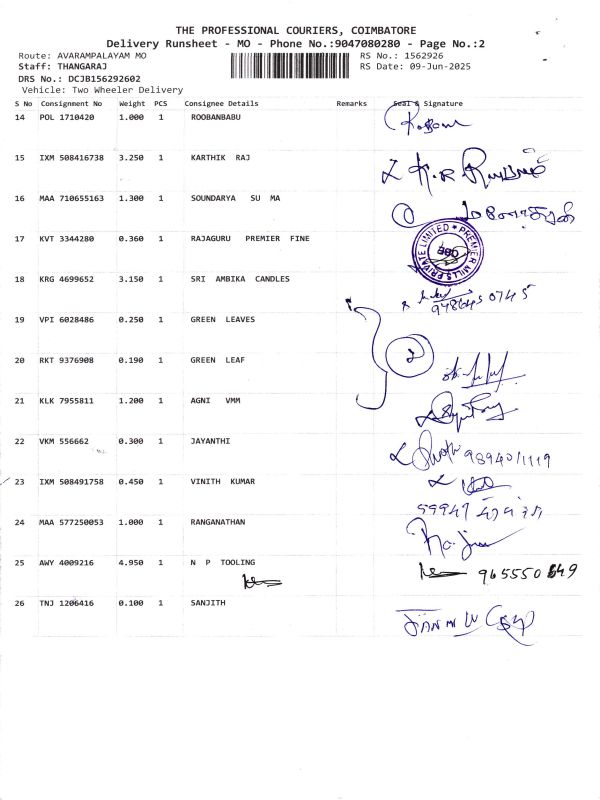 THE PROFESSIONAL COURIERS, COIMBATORE
Delivery Runsheet - MO - Phone No.:9047080280 - Page No.:2
Route: AVARAMPALAYAM MO
RS No.: 1562926
Staff: THANGARAJ
RS Date: 09-Jun-2025
DRS No.: DCJB156292602
Vehicle: Two Wheeler Delivery
S No Consignment No Weight PCS Consignee Details Remarks Seal & Signature
14 POL 1710420 1.000 1 ROOBANBABU
15 IXM 508416738 3.250 1 KARTHIK RAJ
16 MAA 710655163 1.300 1 SOUNDARYA SU MA
17 KVT 3344280 0.360 1 RAJAGURU PREMIER FINE
PREMIER MILLS PRIVATE LIMITED
CBE
18 KRG 4699652 3.150 1 SRI AMBIKA CANDLES
19 VPI 6028486 0.250 1 GREEN LEAVES
20 RKT 9376908 0.190 1 GREEN LEAF
2
21 KLK 7955811 1.200 1 AGNI VMM
22 VKM 556662 0.300 1 JAYANTHI
9894011119
23 IXM 508491758 0.450 1 VINITH KUMAR
24 MAA 577250053 1.000 1 RANGANATHAN
25 AWY 4009216 4.950 1 N P TOOLING
26 TNJ 1206416 0.100 1 SANJITH